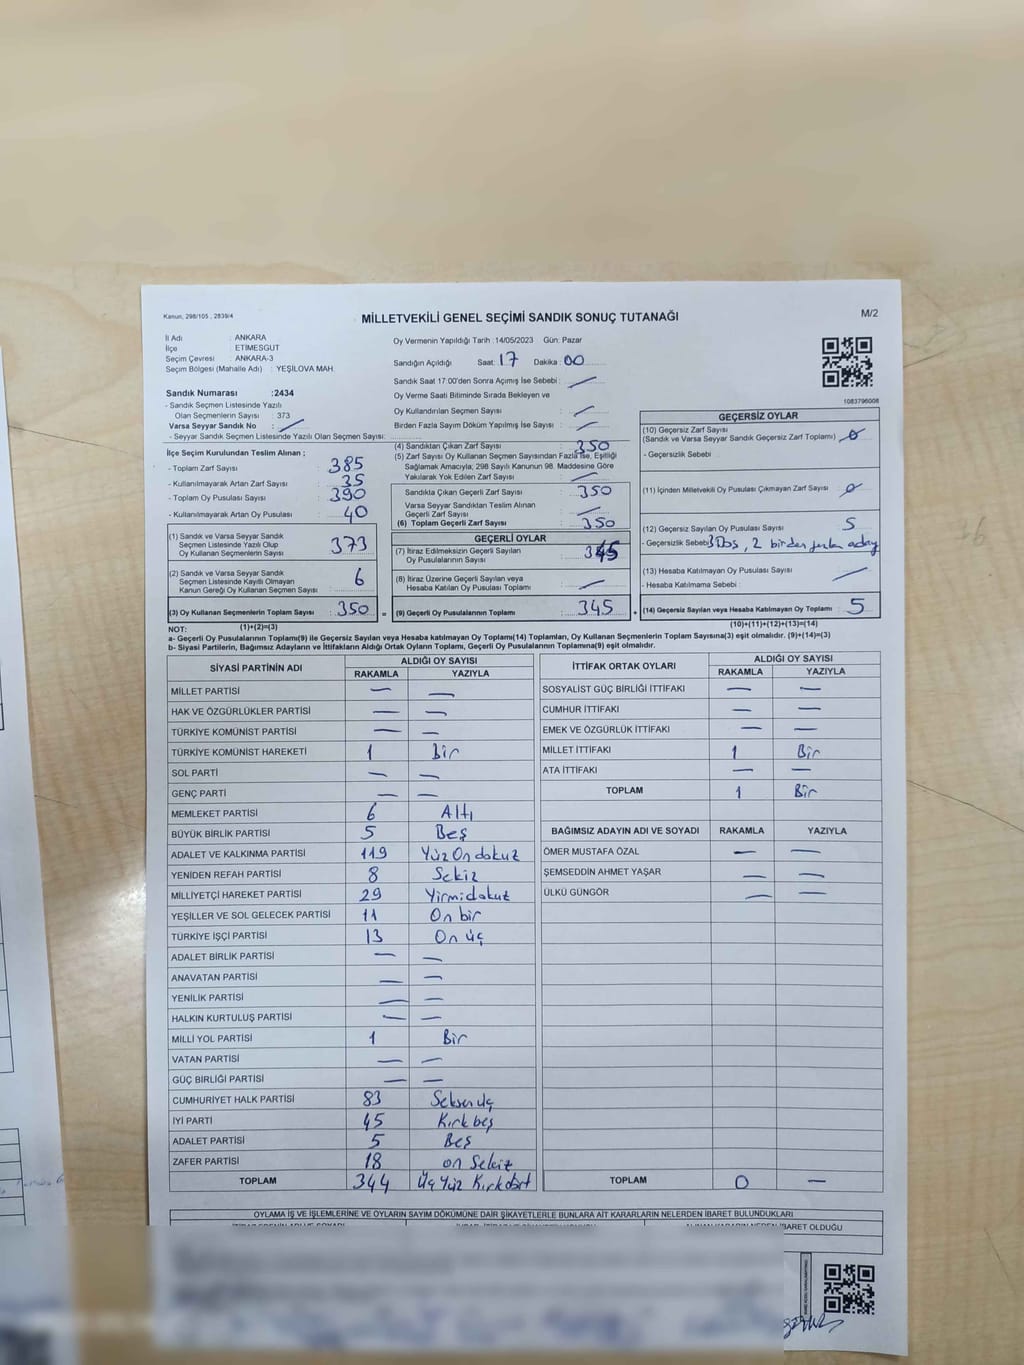 Kanun, 298/105 , 2839/4
MİLLETVEKİLİ GENEL SEÇİMİ SANDIK SONUÇ TUTANAĞI
M/2
İl Adı : ANKARA
İlçe : ETİMESGUT
Seçim Çevresi : ANKARA-3
Seçim Bölgesi (Mahalle Adı) : YEŞİLOVA MAH.
Sandık Numarası :2434
- Sandık Seçmen Listesinde Yazılı
Olan Seçmenlerin Sayısı : 373
Varsa Seyyar Sandık No :
- Seyyar Sandık Seçmen Listesinde Yazılı Olan Seçmen Sayısı:
İlçe Seçim Kurulundan Teslim Alınan ;
- Toplam Zarf Sayısı : 385
- Kullanılmayarak Artan Zarf Sayısı : 35
- Toplam Oy Pusulası Sayısı : 390
- Kullanılmayarak Artan Oy Pusulası : 40
(1) Sandık ve Varsa Seyyar Sandık
Seçmen Listesinde Yazılı Olup
Oy Kullanan Seçmenlerin Sayısı : 373
(2) Sandık ve Varsa Seyyar Sandık
Seçmen Listesinde Kayıtlı Olmayan
Kanun Gereği Oy Kullanan Seçmen Sayısı : 6
(3) Oy Kullanan Seçmenlerin Toplam Sayısı : 350
(1)+(2)=(3)
Oy Vermenin Yapıldığı Tarih :14/05/2023 Gün: Pazar
Sandığın Açıldığı Saat: 17 Dakika : 00
Sandık Saat 17:00'den Sonra Açılmış İse Sebebi :
Oy Verme Saati Bitiminde Sırada Bekleyen ve
Oy Kullandırılan Seçmen Sayısı :
Birden Fazla Sayım Döküm Yapılmış İse Sayısı :
(4) Sandıktan Çıkan Zarf Sayısı : 350
(5) Zarf Sayısı Oy Kullanan Seçmen Sayısından Fazla İse, Eşitliği
Sağlamak Amacıyla; 298 Sayılı Kanunun 98. Maddesine Göre
Yakılarak Yok Edilen Zarf Sayısı :
Sandıkta Çıkan Geçerli Zarf Sayısı : 350
Varsa Seyyar Sandıktan Teslim Alınan
Geçerli Zarf Sayısı :
(6) Toplam Geçerli Zarf Sayısı : 350
GEÇERLİ OYLAR
(7) İtiraz Edilmeksizin Geçerli Sayılan
Oy Pusulalarının Sayısı : 345
(8) İtiraz Üzerine Geçerli Sayılan veya
Hesaba Katılan Oy Pusulası Toplamı :
= (9) Geçerli Oy Pusulalarının Toplamı : 345
1083796008
GEÇERSİZ OYLAR
(10) Geçersiz Zarf Sayısı
(Sandık ve Varsa Seyyar Sandık Geçersiz Zarf Toplamı) : 0
- Geçersizlik Sebebi :
(11) İçinden Milletvekili Oy Pusulası Çıkmayan Zarf Sayısı : 0
(12) Geçersiz Sayılan Oy Pusulası Sayısı : 5
- Geçersizlik Sebebi : 3 Boş, 2 birden fazla aday
(13) Hesaba Katılmayan Oy Pusulası Sayısı :
- Hesaba Katılmama Sebebi :
+ (14) Geçersiz Sayılan veya Hesaba Katılmayan Oy Toplamı : 5
(10)+(11)+(12)+(13)=(14)
NOT:
a- Geçerli Oy Pusulalarının Toplamı(9) ile Geçersiz Sayılan veya Hesaba katılmayan Oy Toplamı(14) Toplamları, Oy Kullanan Seçmenlerin Toplam Sayısına(3) eşit olmalıdır. (9)+(14)=(3)
b- Siyasi Partilerin, Bağımsız Adayların ve İttifakların Aldığı Ortak Oyların Toplamı, Geçerli Oy Pusulalarının Toplamına(9) eşit olmalıdır.
SİYASİ PARTİNİN ADI ALDIĞI OY SAYISI
RAKAMLA YAZIYLA
MİLLET PARTİSİ — —
HAK VE ÖZGÜRLÜKLER PARTİSİ — —
TÜRKİYE KOMÜNİST PARTİSİ — —
TÜRKİYE KOMÜNİST HAREKETİ 1 Bir
SOL PARTİ — —
GENÇ PARTİ — —
MEMLEKET PARTİSİ 6 Altı
BÜYÜK BİRLİK PARTİSİ 5 Beş
ADALET VE KALKINMA PARTİSİ 119 Yüz On dokuz
YENİDEN REFAH PARTİSİ 8 Sekiz
MİLLİYETÇİ HAREKET PARTİSİ 29 Yirmi dokuz
YEŞİLLER VE SOL GELECEK PARTİSİ 11 On bir
TÜRKİYE İŞÇİ PARTİSİ 13 On üç
ADALET BİRLİK PARTİSİ — —
ANAVATAN PARTİSİ — —
YENİLİK PARTİSİ — —
HALKIN KURTULUŞ PARTİSİ — —
MİLLİ YOL PARTİSİ 1 Bir
VATAN PARTİSİ — —
GÜÇ BİRLİĞİ PARTİSİ — —
CUMHURİYET HALK PARTİSİ 83 Seksen üç
İYİ PARTİ 45 Kırk beş
ADALET PARTİSİ 5 Beş
ZAFER PARTİSİ 18 on Sekiz
TOPLAM 344 Üç Yüz Kırk dört
İTTİFAK ORTAK OYLARI ALDIĞI OY SAYISI
RAKAMLA YAZIYLA
SOSYALİST GÜÇ BİRLİĞİ İTTİFAKI — —
CUMHUR İTTİFAKI — —
EMEK VE ÖZGÜRLÜK İTTİFAKI — —
MİLLET İTTİFAKI 1 Bir
ATA İTTİFAKI — —
TOPLAM 1 Bir
BAĞIMSIZ ADAYIN ADI VE SOYADI RAKAMLA YAZIYLA
ÖMER MUSTAFA ÖZAL — —
ŞEMSEDDİN AHMET YAŞAR — —
ÜLKÜ GÜNGÖR — —
TOPLAM 0 —
OYLAMA İŞ VE İŞLEMLERİNE VE OYLARIN SAYIM DÖKÜMÜNE DAİR ŞİKAYETLERLE BUNLARA AİT KARARLARIN NELERDEN İBARET BULUNDUKLARI
İBARET OLDUĞU